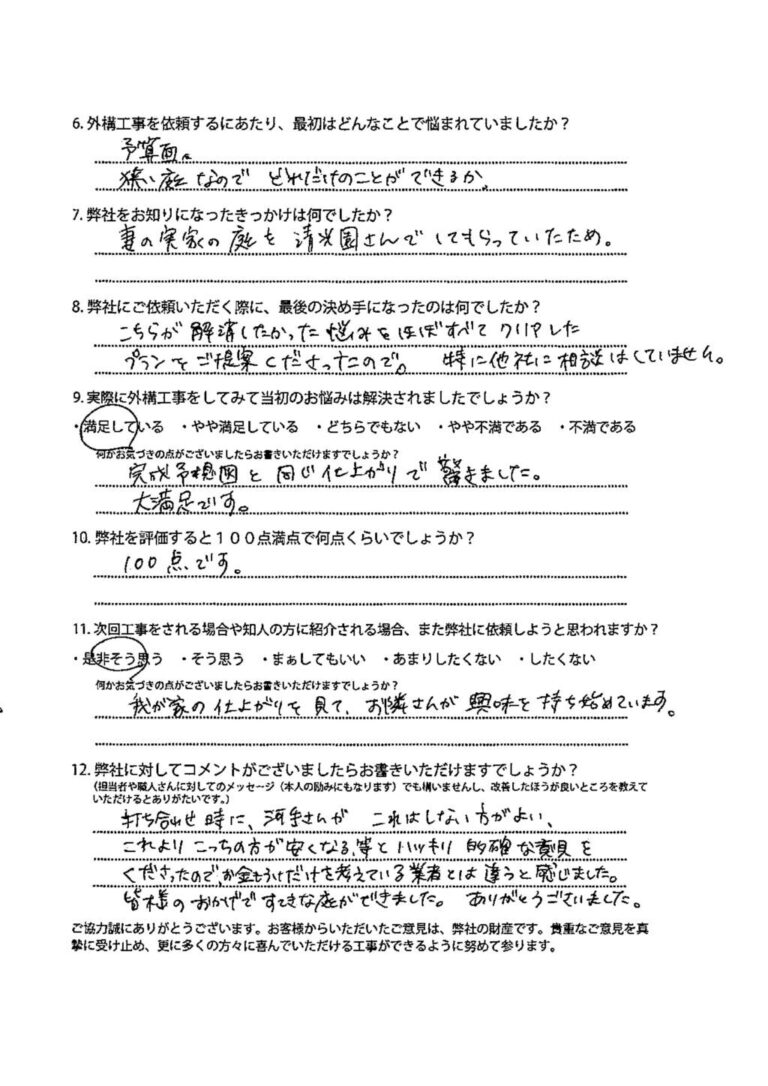 6. 外構工事を依頼するにあたり、最初はどんなことで悩まれていましたか？
予算面。
狭い庭なので どれだけのことができるか。
7. 弊社をお知りになったきっかけは何でしたか？
妻の実家の庭を 清光園さんで してもらっていたため。
8. 弊社にご依頼いただく際に、最後の決め手になったのは何でしたか？
こちらが 解消したかった 悩みをほぼすべて クリアした
プランをご提案くださったので。 特に他社に相談はしていません。
9. 実際に外構工事をしてみて当初のお悩みは解決されましたでしょうか？
・満足している ・やや満足している ・どちらでもない ・やや不満である ・不満である
何かお気づきの点がございましたらお書きいただけますでしょうか？
完成予想図と 同じ仕上がりで 驚きました。
大満足です。
10. 弊社を評価すると１００点満点で何点くらいでしょうか？
100点です。
11. 次回工事をされる場合や知人の方に紹介される場合、また弊社に依頼しようと思われますか？
・是非そう思う ・そう思う ・まぁしてもいい ・あまりしたくない ・したくない
何かお気づきの点がございましたらお書きいただけますでしょうか？
我が家の仕上がりを見て、お隣さんが 興味を持ち始めています。
12. 弊社に対してコメントがございましたらお書きいただけますでしょうか？
（担当者や職人さんに対してのメッセージ（本人の励みにもなります）でも構いませんし、改善したほうが良いところを教えて
いただけるとありがたいです。）
打ち合わせ時に、河手さんが これはしない方がよい、
これより こっちの方が安くなる、等とハッキリ 的確な意見を
くださったので、お金もうけだけを考えている業者とは違うと感じました。
皆様のおかげですてきな庭ができました。 ありがとうございました。
ご協力誠にありがとうございます。お客様からいただいたご意見は、弊社の財産です。貴重なご意見を真
摯に受け止め、更に多くの方々に喜んでいただける工事ができるように努めて参ります。